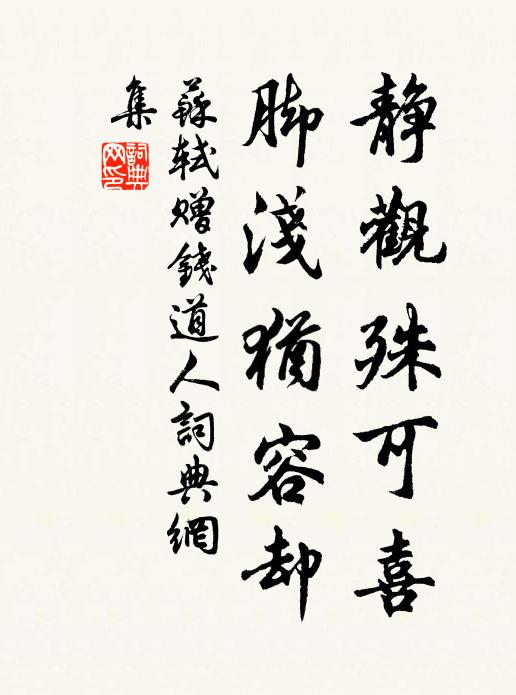 靜觀殊可喜
脚淺猶容却
蘇軾贈錢道人詞典網
集
詞典
网印